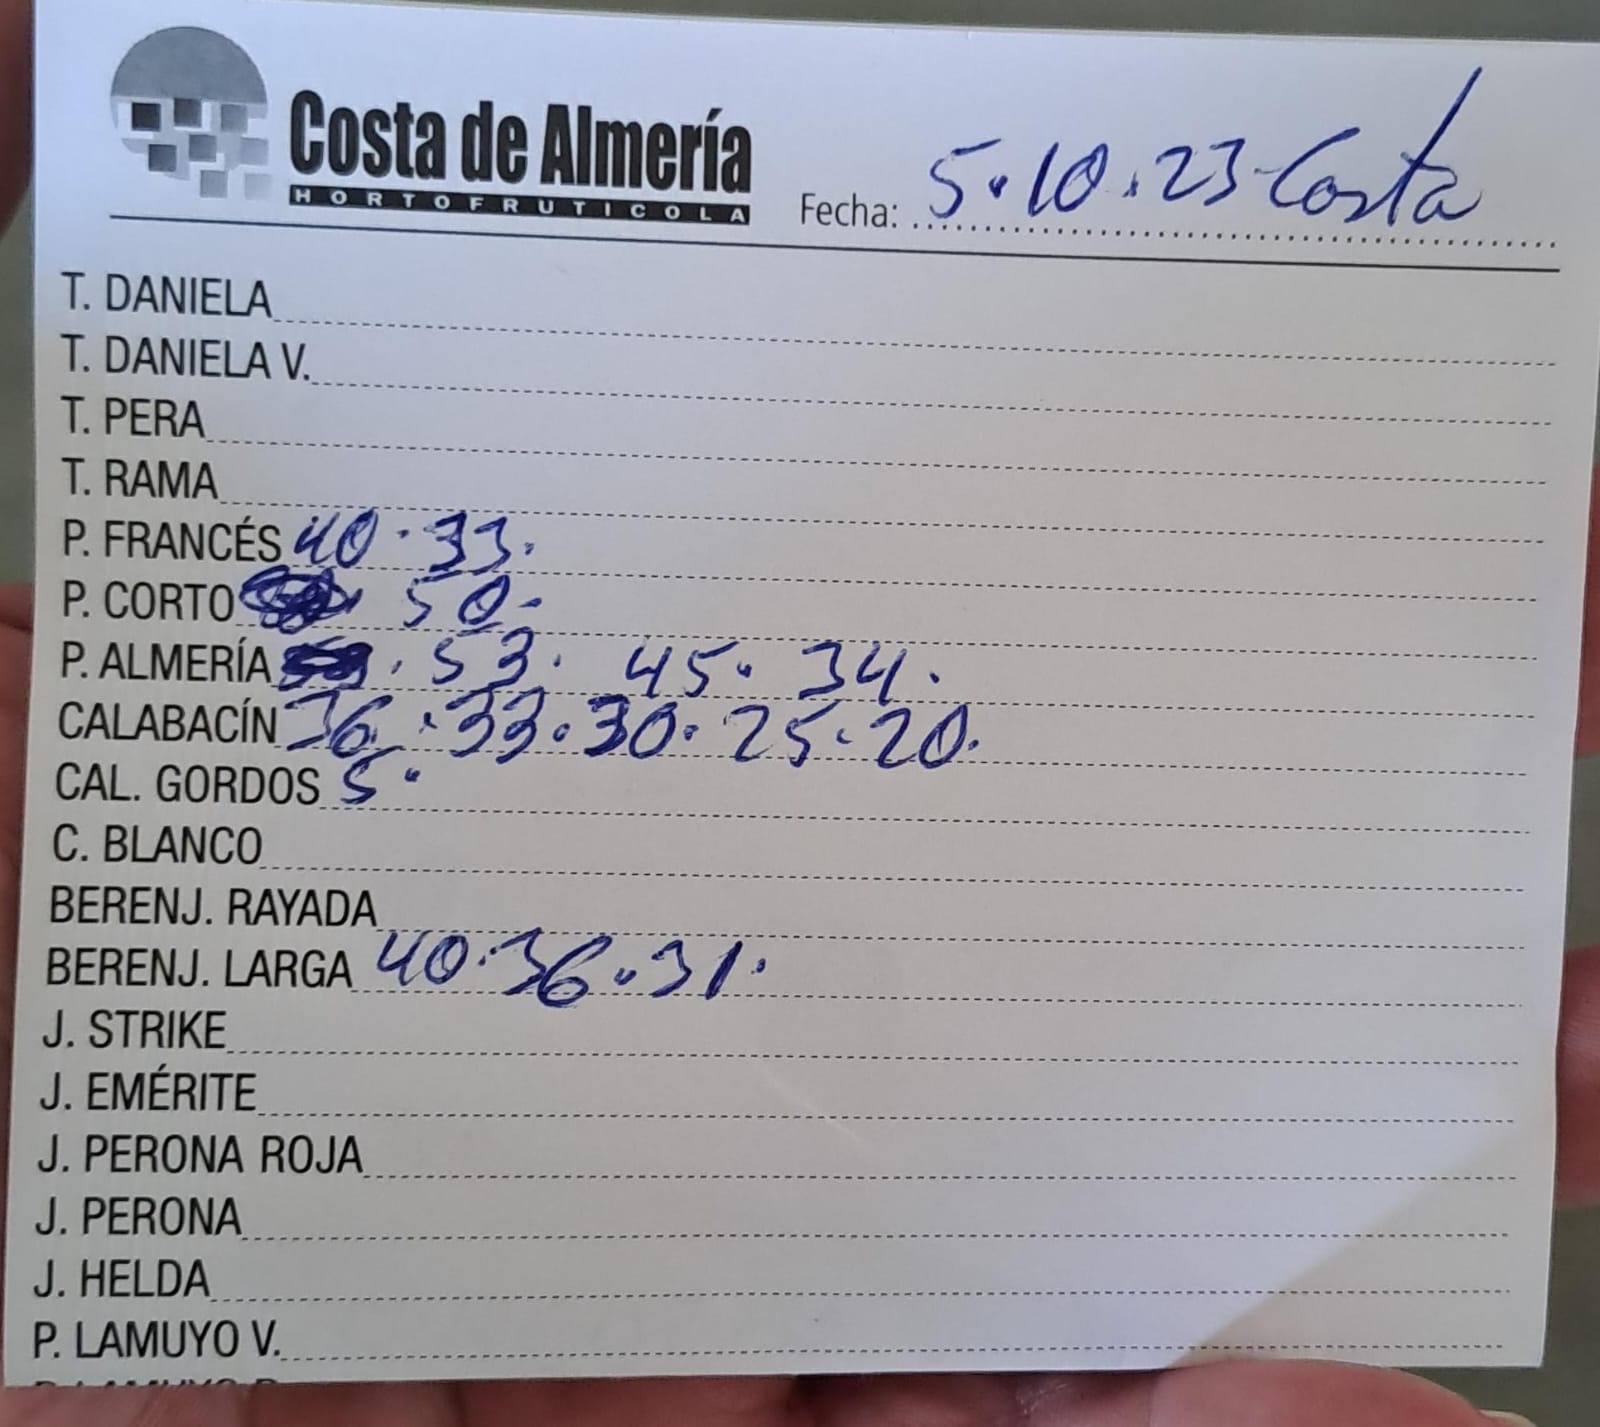 Costa de Almería
HORTOFRUTICOLA
Fecha: 5.10.23 Costa
T. DANIELA
T. DANIELA V.
T. PERA
T. RAMA
P. FRANCÉS 40.33.
P. CORTO 50-
P. ALMERÍA . 53. 45. 34.
CALABACÍN 36.33.30.25.20.
CAL. GORDOS 5.
C. BLANCO
BERENJ. RAYADA
BERENJ. LARGA 40.36.31.
J. STRIKE
J. EMÉRITE
J. PERONA ROJA
J. PERONA
J. HELDA
P. LAMUYO V.